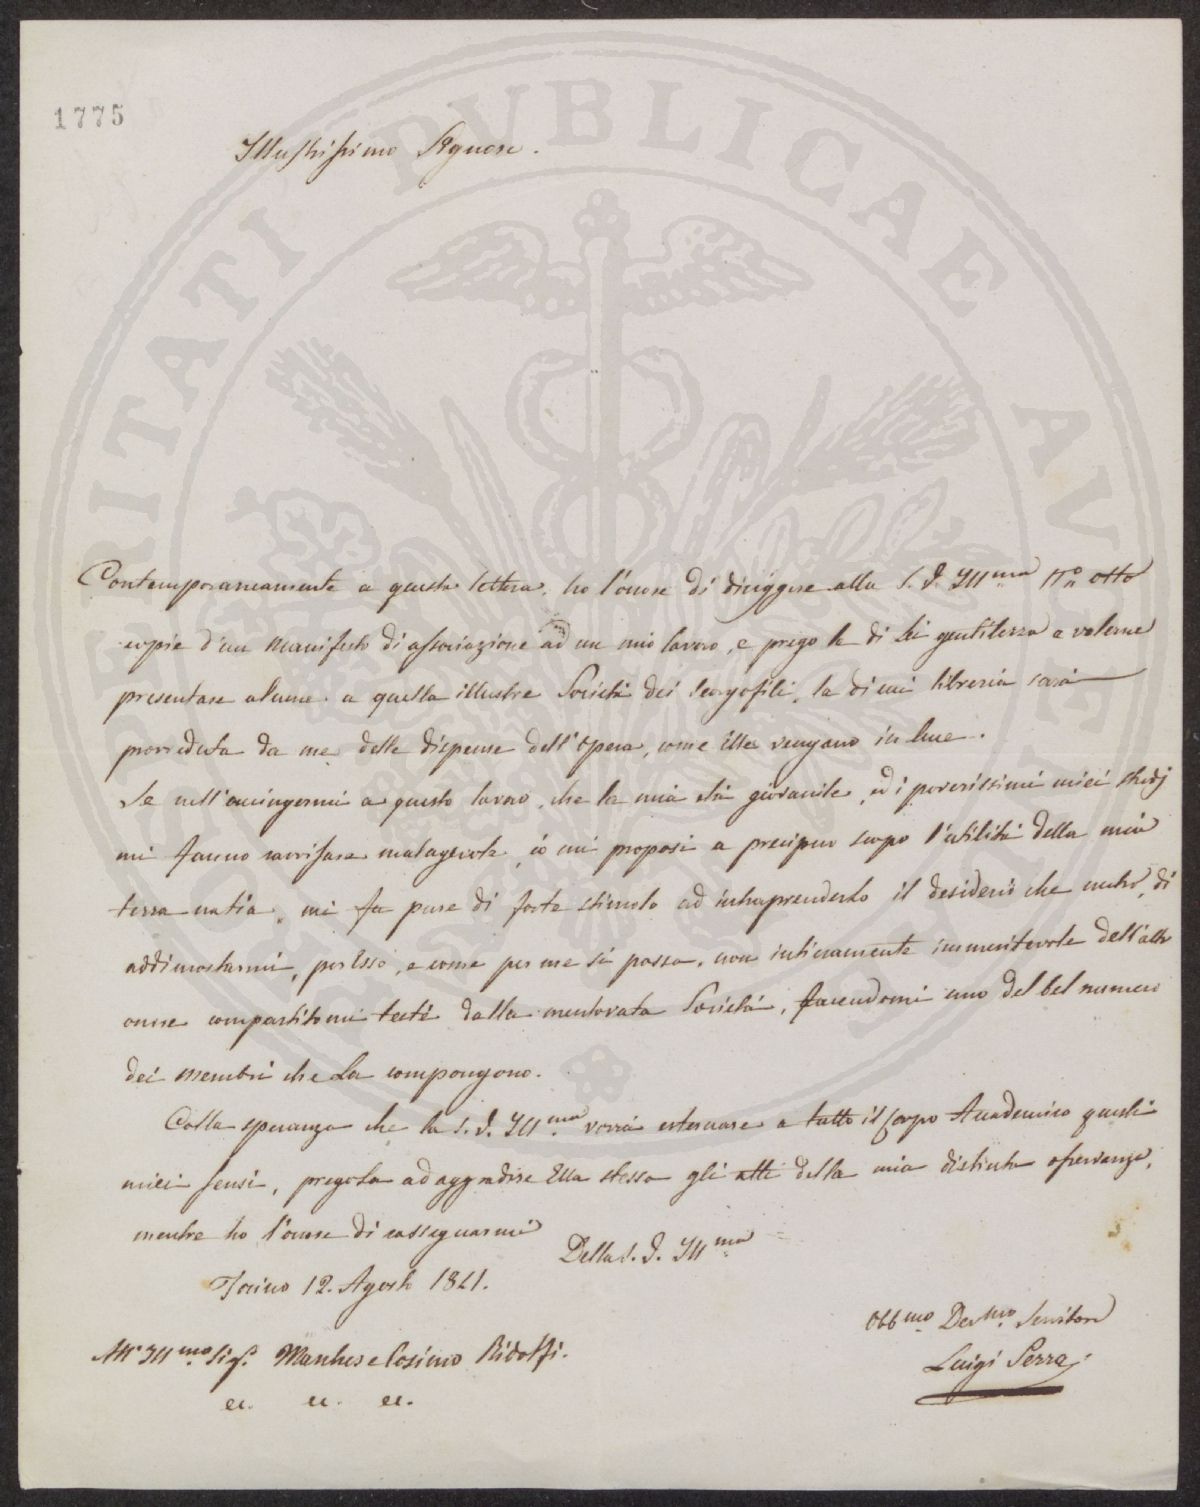 1775
Illustrissimo Signore.
Contemporaneamente a questa lettera, ho l'onore di diriggere alla S. V. Ill.ma N.o otto
copie d'un Manifesto di associazione ad un mio lavoro, e prego la di Lei gentilezza a volerne
presentare alcune a quella illustre Società dei Georgofili, la di cui libreria sarà
provveduta da me delle dispense dell'Opera, come elle vengano in luce.
Se nell'accingermi a questo lavoro, che la mia età giovanile, ed i poverissimi miei studj
mi fanno malagevole, io mi proposi a precipuo scopo l'utilità della mia
terra natia, mi fu pure di forte stimolo ad intraprenderlo il desiderio che nutro, di
addimostrarmi, per esso, e come per me si possa, non intieramente immeritevole dell'alto
onore compartitomi testé dalla mentovata Società, facendomi uno del bel numero
dei membri che La compongono.
Colla speranza che la S. V. Ill.ma vorrà esternare a tutto il Corpo Accademico questi
miei sensi, pregola ad aggradire Ella stessa gli atti della mia distinta osservanza,
mentre ho l'onore di rassegnarmi
Della S. V. Ill.ma
Torino 12. Agosto 1841.
Obb.mo Dev.mo Servitore
All' Ill.mo Sig.r Marchese Cosimo Ridolfi.
Luigi Serra
ec. ec. ec.
PROSPERITATI PUBLICAE AUGENDAE